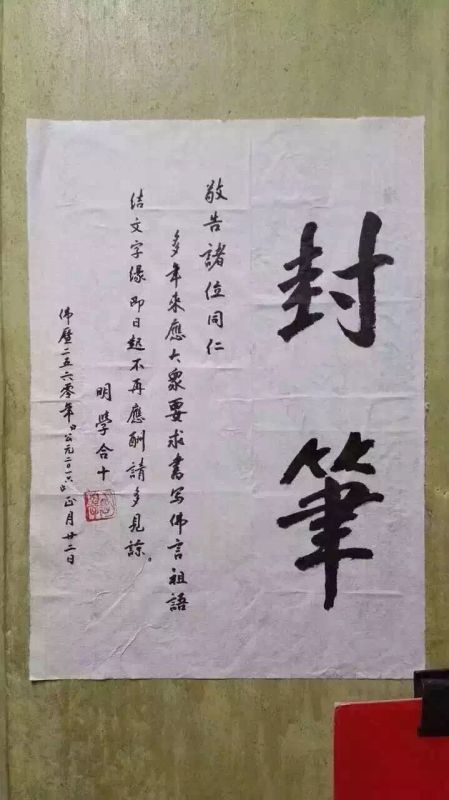 封筆
敬告諸位同仁
多年來應大衆要求書写佛言祖語
结文字缘即日起不再應酬請多見諒。
明學合十
佛歷二五六零年(公元二〇一六)正月廿二日